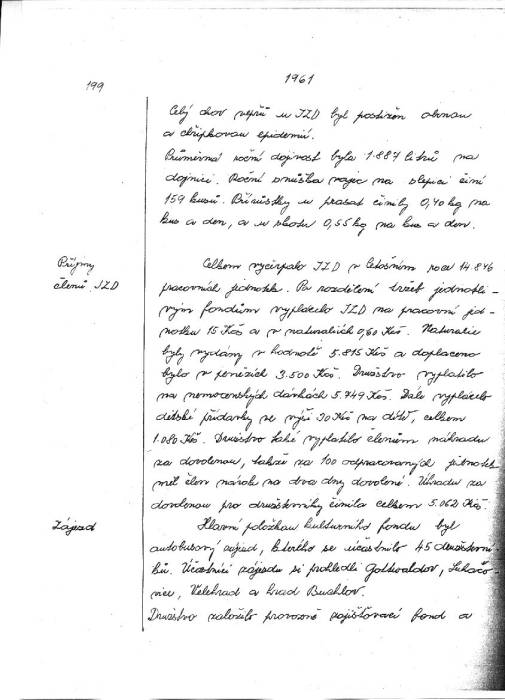 199
1961
Celý chov vepřů u JZD byl postižen obrnou
a chřipkovou epidemií.
Průměrná roční dojivost byla 1.887 litrů na
dojnici. Roční snůška vajec na slepici činí
159 kusů. Přírůstky u prasat činily 0,40 kg na
kus a den, a u skotu 0,55 kg na kus a den.
Příjmy
členů JZD
Celkem vyčerpalo JZD v letošním roce 14.846
pracovních jednotek. Po rozdělení tržeb jednotli-
vým fondům vyplácelo JZD na pracovní jed-
notku 15 Kčs a v naturaliích 0,60 Kčs. Naturalie
byly vydány v hodnotě 5.815 Kčs a doplaceno
bylo v penězích 3.500 Kčs. Družstvo vyplatilo
na nemocenských dávkách 5.749 Kčs. Dále vyplácelo
dětské přídavky ve výši 30 Kčs na dítě, celkem
1.080 Kčs. Družstvo také vyplatilo členům náhradu
za dovolenou, takže za 100 odpracovaných jednotek
měl člen nárok na dva dny dovolené. Úhrada za
dovolenou pro družstevníky činila celkem 5.062 Kčs.
Zájezd
Hlavní položkou kulturního fondu byl
autobusový zájezd, kterého se účastnilo 45 družstevní-
ků. Účastníci zájezdu si prohlédli Gottwaldov, Luhačo-
vice, Velehrad a hrad Buchlov.
Družstvo založilo provozně zajišťovací fond a